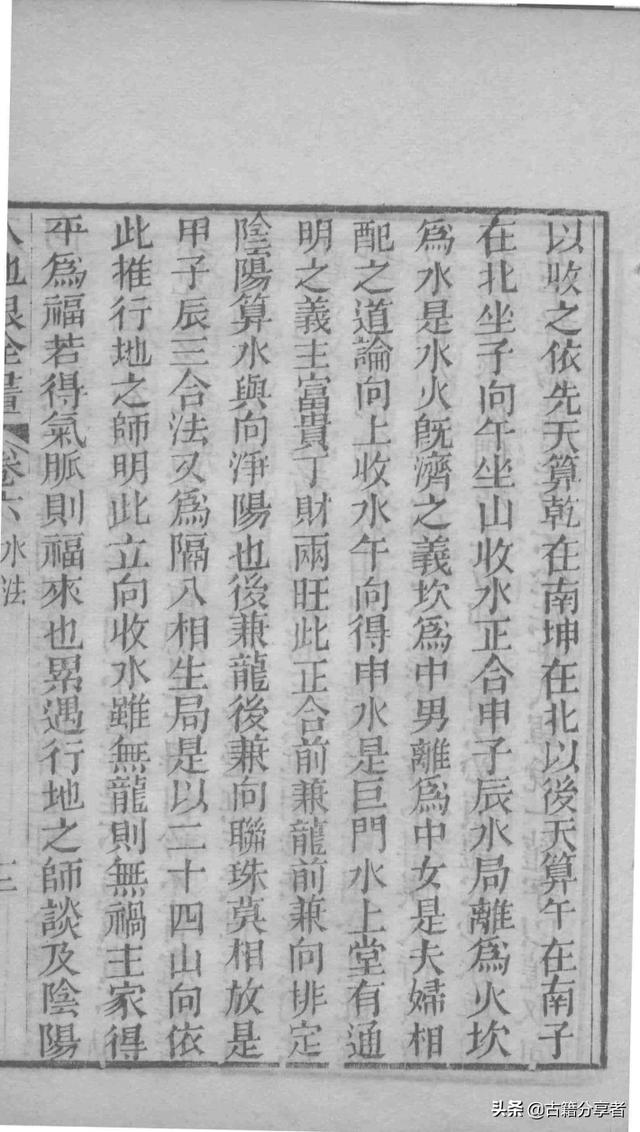 以收之依先天算乾在南坤在北以後天算午在南子
在北坐子向午坐山收水正合申子辰水局離爲火坎
爲水是水火旣濟之義坎爲中男離爲中女是夫婦相
配之道論向上收水午向得申水是巨門水上堂有通
明之義主富貴丁財兩旺此正合前兼龍前兼向排定
陰陽算水與向淨陽也後兼龍後兼向聯珠莫相放是
甲子辰三合法又爲隔八相生局是以二十四山向依
此推行地之師明此立向收水雖無龍則無禍主家得
平爲福若得氣脈則福來也累遇行地之師談及陰陽
地眼全書 卷六 水法 三
头条 @古籍分享者